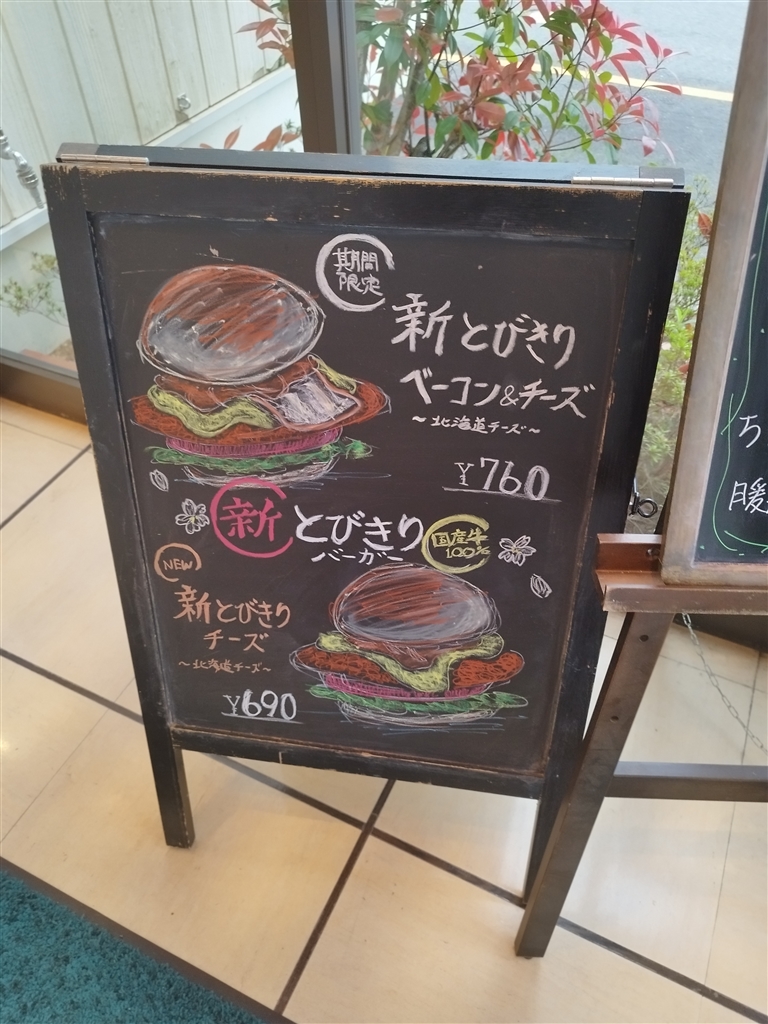 期間
限定
新とびきり
ベーコン&チーズ
～北海道チーズ～
¥760
新とびきり
バーガー
国産牛
100%
NEW
新とびきり
チーズ
～北海道チーズ～
¥690
ち
暖